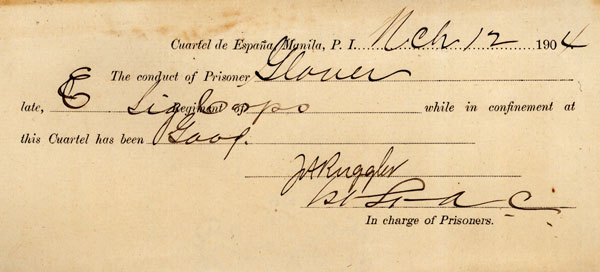 Cuartel de España, Manila, P. I. Mch 12 1904
The conduct of Prisoner Glover
late, E Sig Corps Regiment of while in confinement at
this Cuartel has been Good.
J A Ruggles
1st Lt A. C.
In charge of Prisoners.